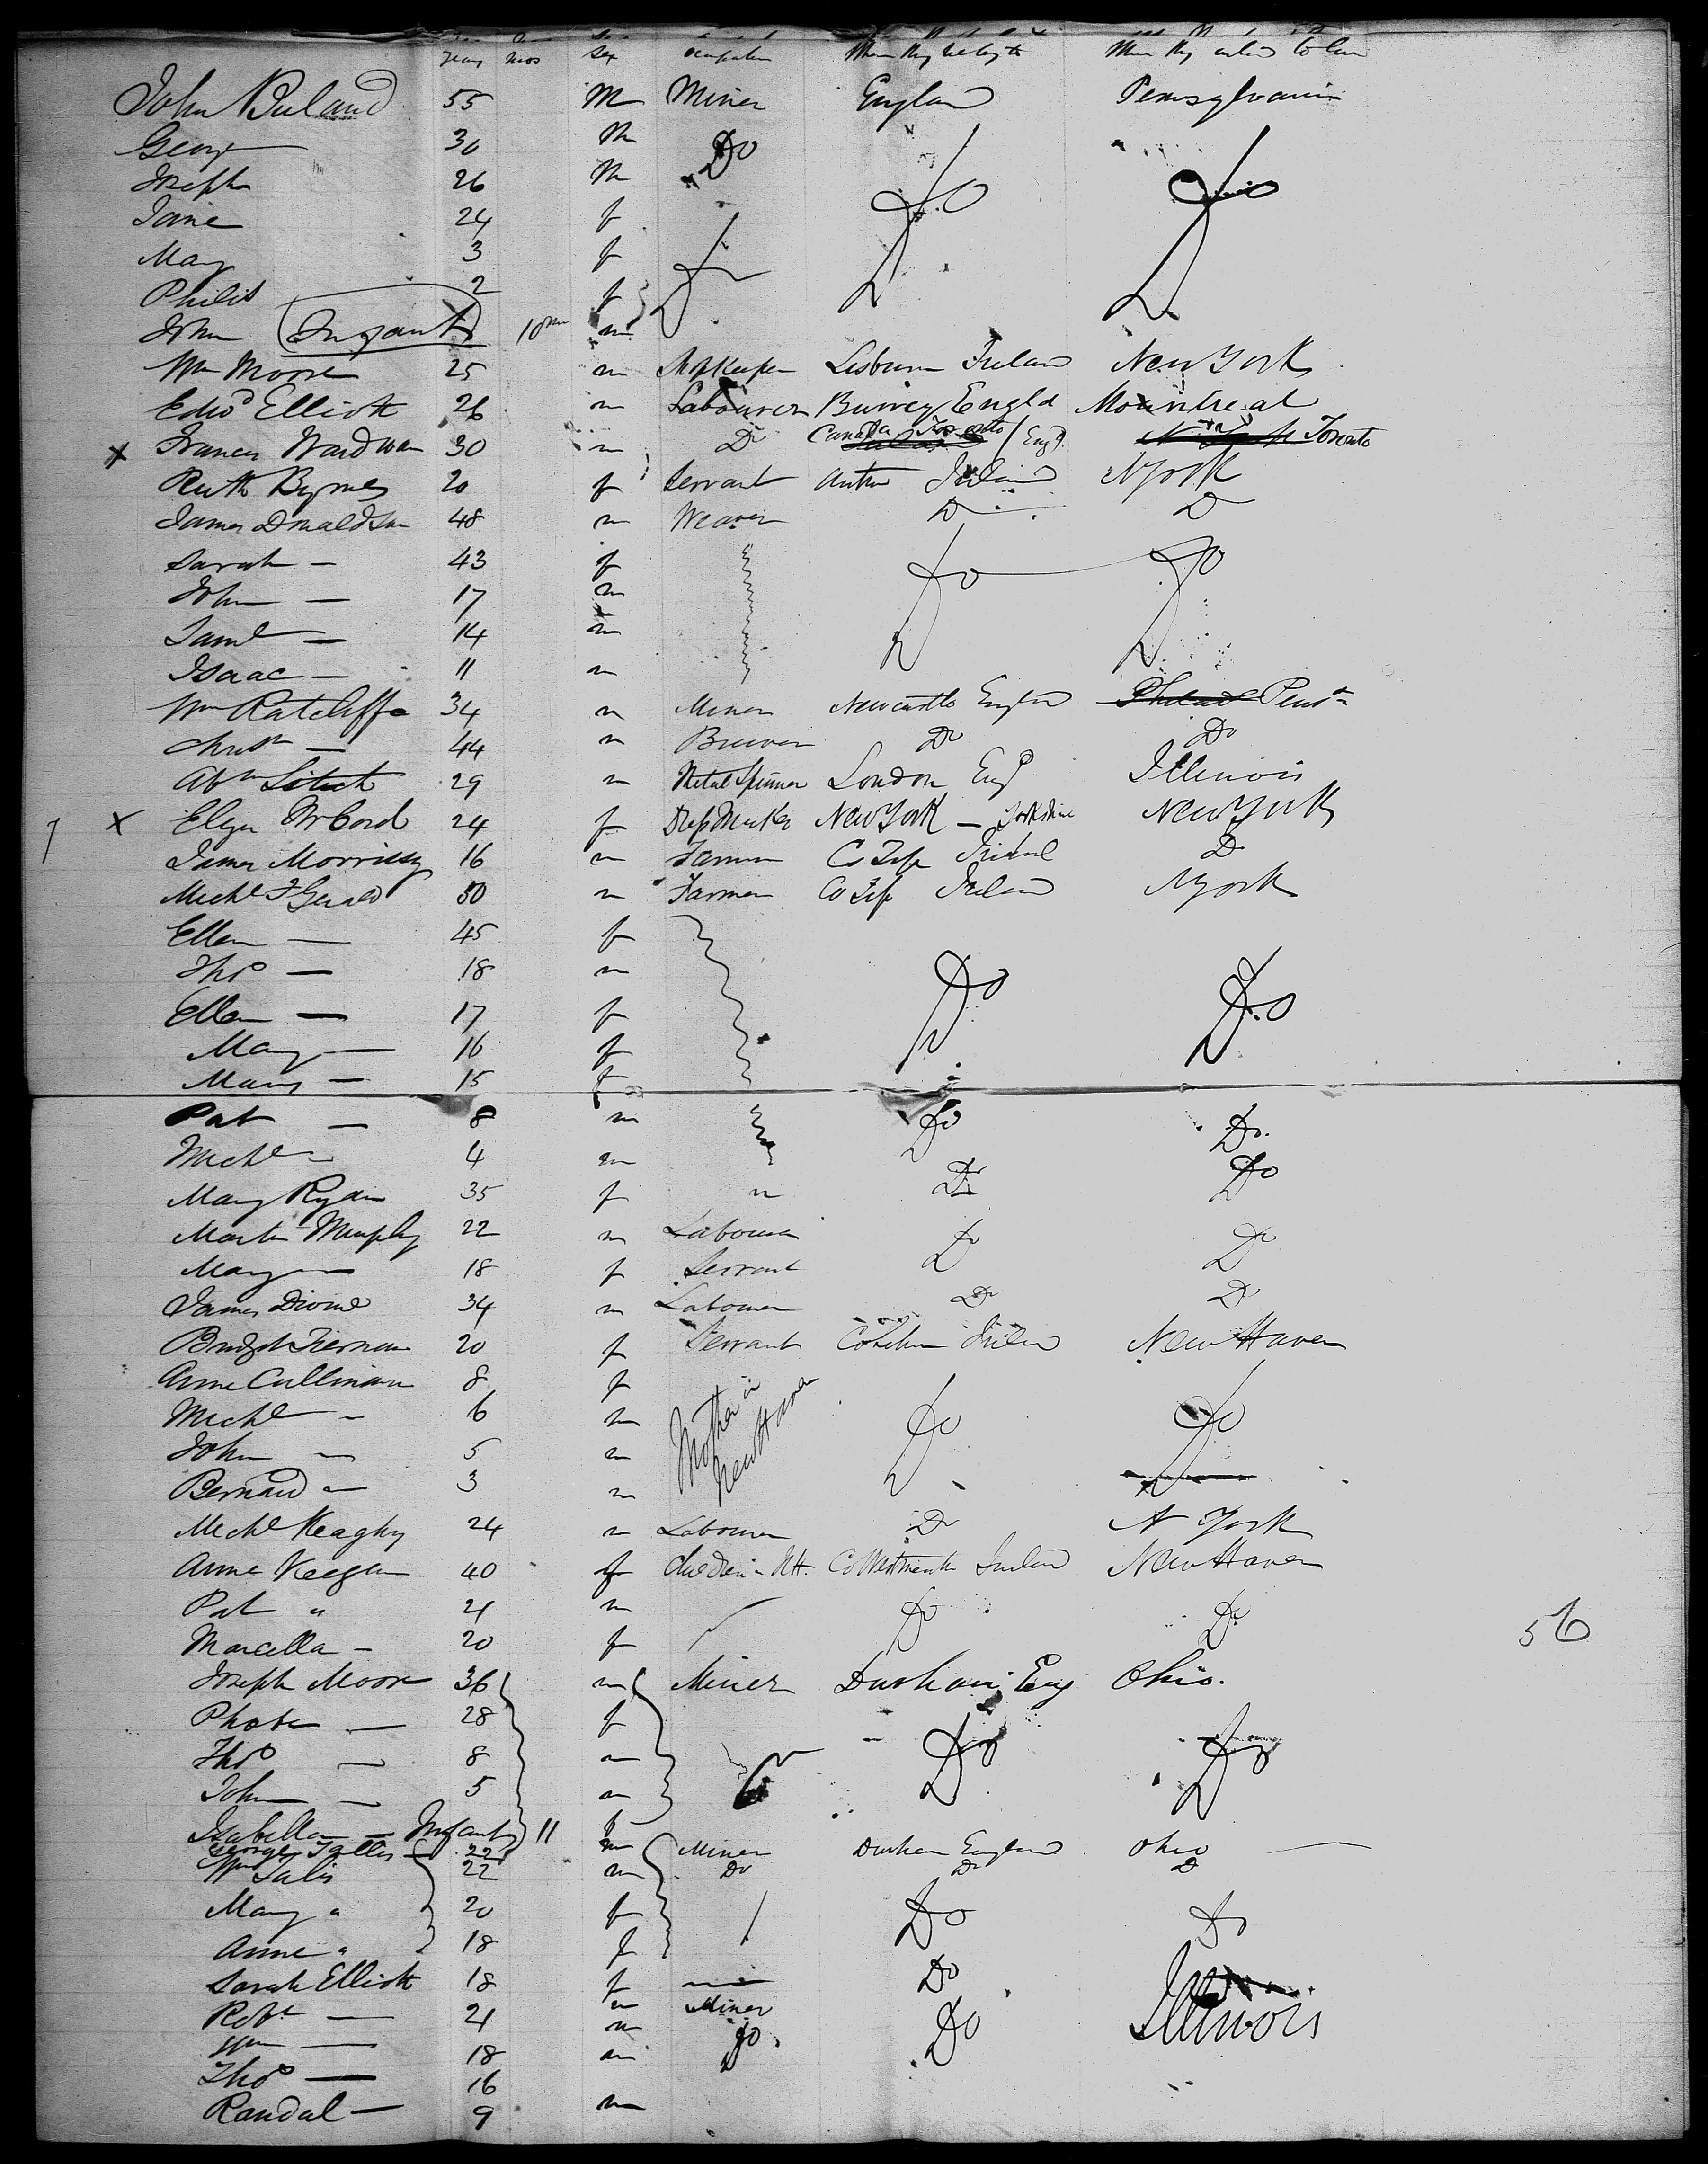 Years Mos Sex Occupation
John Buland 55 M Miner England Pensylvania
George 30 M Do
Joseph 26 M Do Do
Jane 24 f
Mary 3 f Do
Philis 2 f
John Infant 10 m
Wm Moore 25 m Shopkeeper Lisburn Ireland New York
Edwd Elliott 26 m Labourer Engld Montreal
x Francis Wardman 30 m Do Canada Toronto Engd Toronto
Ruth Byrnes 20 f Servant Ireland N York
James Donaldson 48 m Weaver Do Do
Sarah — 43 f Do Do
John — 17 m
Saml — 14 m
Isaac — 11 m
Wm Ratcliffe 34 m Miner Newcastle England Philad Pensa
Christr — 44 m Brewer Do Do
Abm 29 m Metal Spinner London Engd Illinois
7 x McCord 24 f Dress Maker New York — Yorkshire New York
James Morrissy 16 m Farmer Co Tip Ireland Do
Michl FGerald 50 m Farmer Co Tip Ireland N York
Ellen — 45 f
Thos — 18 m Do Do
Ellen — 17 f
Mary — 16 f
— 15 f
Pat — 8 m Do Do
Michl — 4 m
Mary Ryan 35 f " Do Do
Martin Murphy 22 m Labourer Do Do
Mary — 18 f Servant
James 34 m Labourer Do Do
Bridget Tiernan 20 f Servant Ireland New Haven
Anne Cullinan 8 f Mother in
Michl - 6 m New Haven Do Do
John - 5 m
Bernard - 3 m
Michl Keaghy 24 m Labourer Do N York
Anne Keegan 40 f N H. Co Westmeath Ireland New Haven
Pat " 21 m Do Do
Marcella - 20 f 56
Joseph Moore 36 m Miner Durham Eng Ohio.
Phobe — 28 f
Thos — 8 m Do Do
John — 5 m
Isabella — Infant 11 f
George 22 m Miner Durham England Ohio —
Wm 22 m Do Do Do
Mary " 20 f Do Do
Anne " 18 f
Sarah Elliott 18 f Do
Robt — 21 m Miner Do Illinois
Wm — 18 m Do
Thos — 16 m
Randal — 9 m